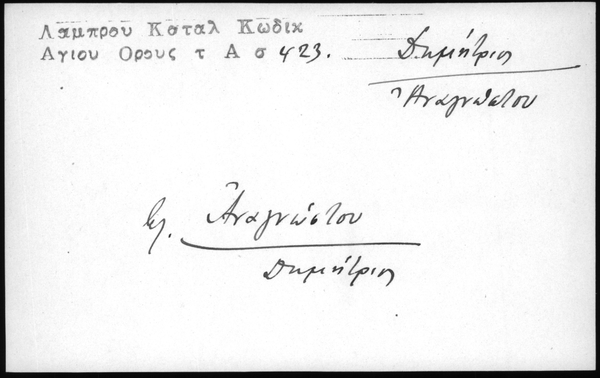 Λαμπρου Καταλ Κωδικ
Αγιου Ορους τ Α σ 423.
Δημήτριος
Ἀναγνώστου
βλ. Ἀναγνώστου
Δημήτριος